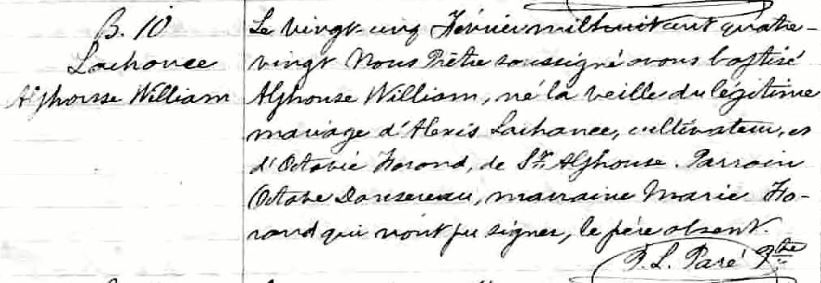 B. 10
Lachance
Alphonse William
Le vingt-cinq Février mil huit cent quatre-
vingt Nous Prêtre soussigné avons baptisé
Alphonse William, né la veille du légitime
mariage d'Alexis Lachance, cultivateur, et
d'Octavie Forand, de St. Alphonse. Parrain
Octave Dansereau, marraine Marie Fo-
rand qui n'ont pu signer, le père absent.
P. L. Paré Ptre